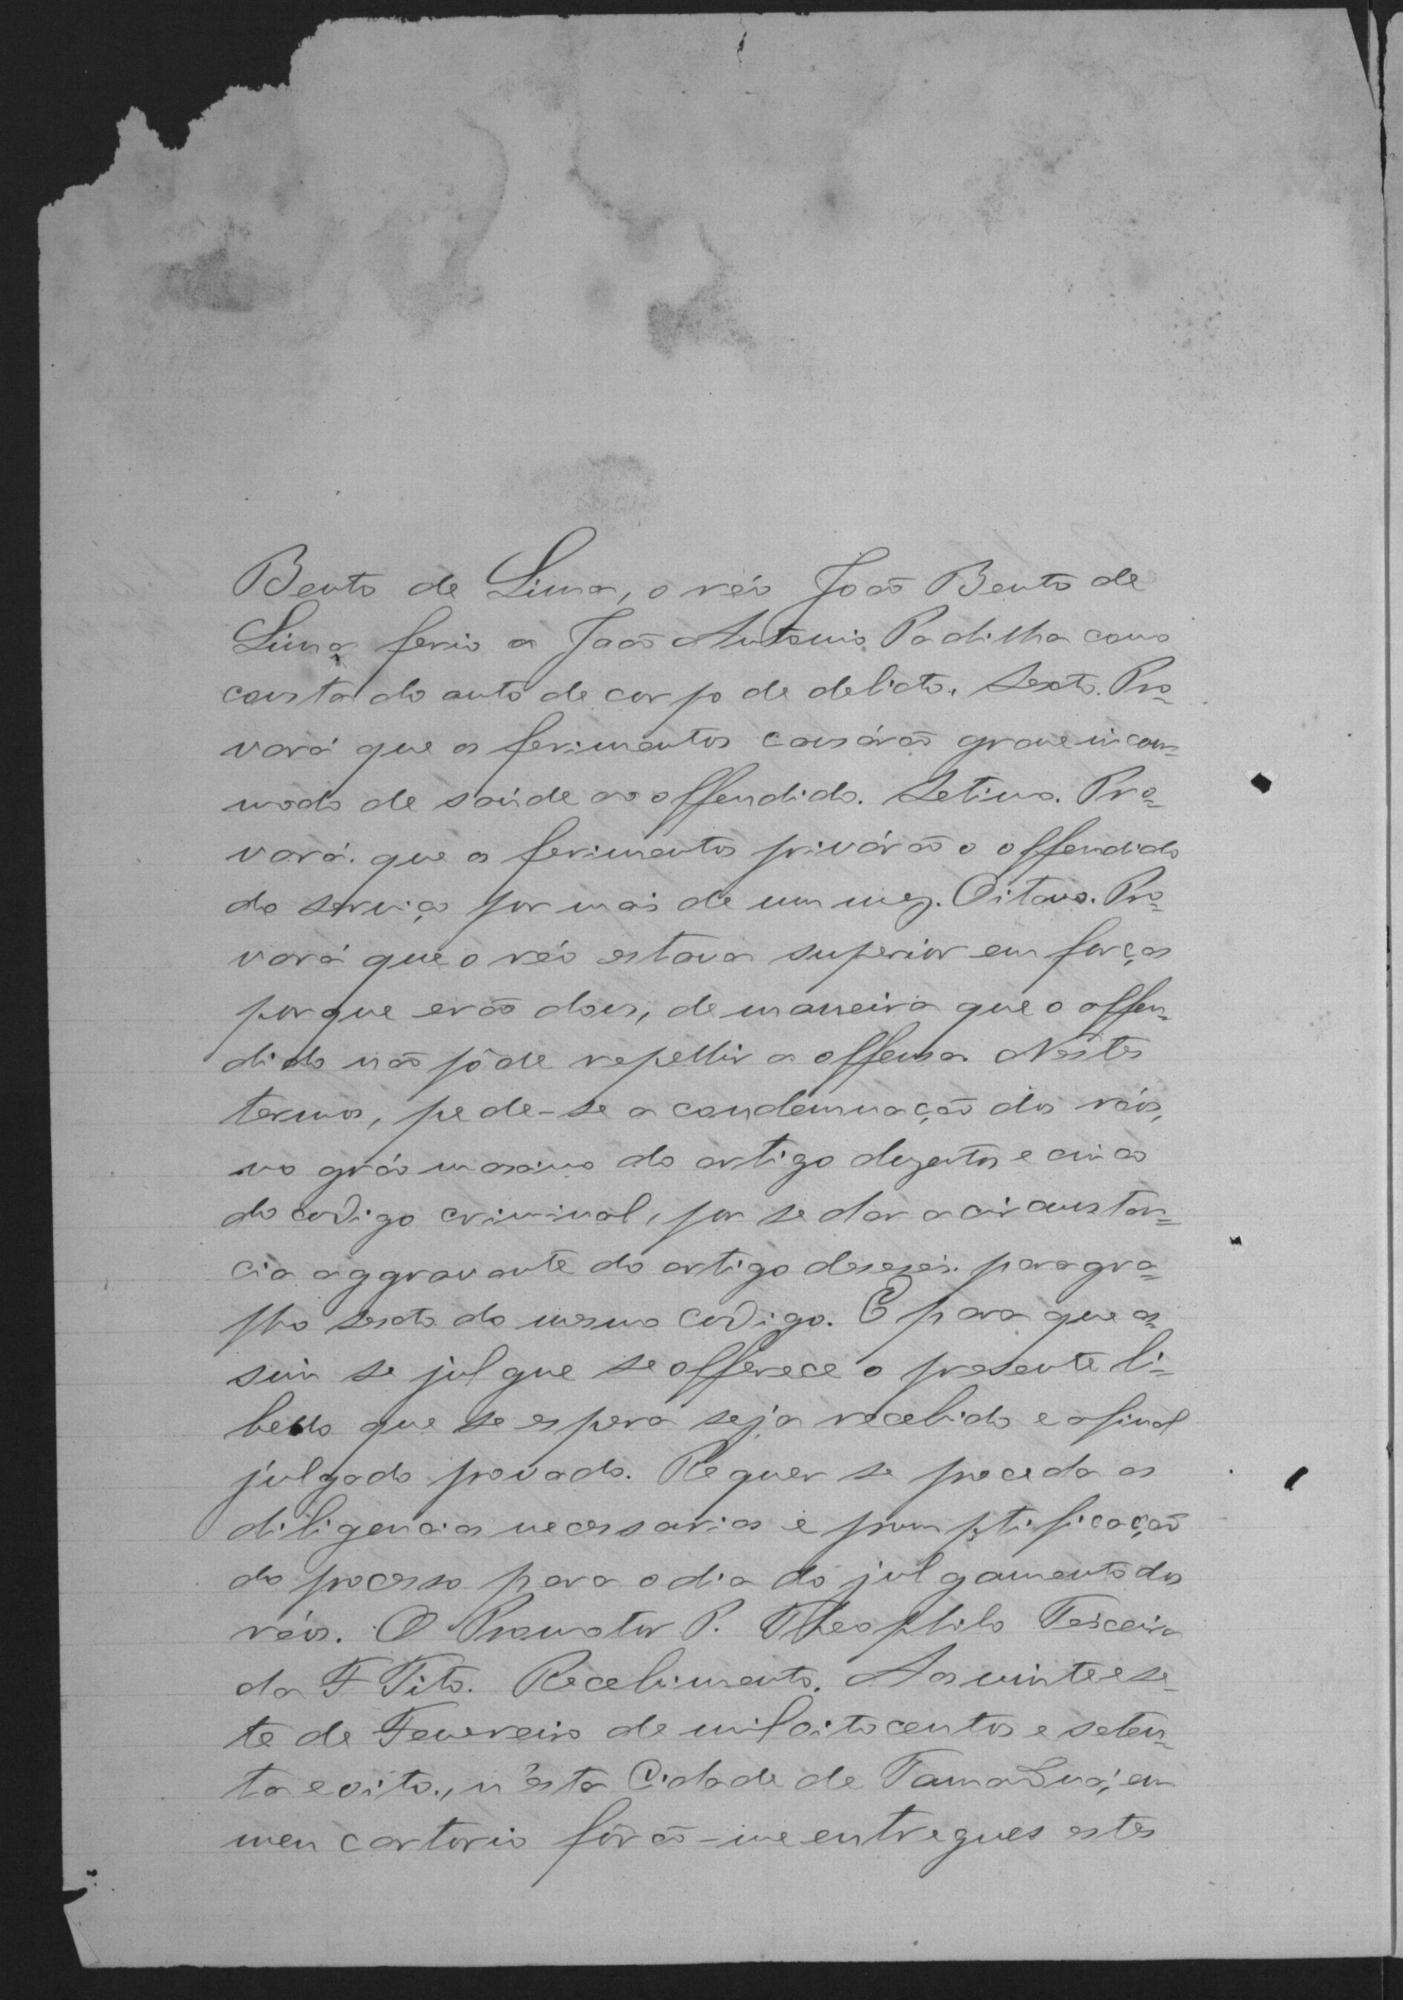 Bento de Lima, o réo João Bento de
Lima ferio a João Antonio Padilha como
consta do auto de corpo de delicto. Sexto. Pro=
vará que os ferimentos causárão grave incom=
modo de saúde ao offendido. Setimo. Pro=
vará que os ferimentos privárão o offendido
do serviço por mais de um mez. Oitavo. Pro=
vará que o réo estava superior em forças
porque erão dous, de maneira que o offen=
dido não pôde repellir a offensa. Nestes
termos, pede-se a condemnação dos réos,
no gráo maximo do artigo duzentos e cinco
do codigo criminal, por se dar a circunstan=
cia aggravante do artigo deseseis paragra=
pho sexto do mesmo codigo. E para que as
sim se julgue se offerece o presente li=
bello que se espera seja recebido e afinal
julgado provado. Requer se proceda as
diligencias necessarias e promptificação
do processo para o dia do julgamento dos
réos. O Promotor P. Theophilo Teixeira
da F Tito. Recebimento. Aos vinte e se=
te de Fevereiro de mil oitocentos e seten=
ta e oito, n'esta Cidade de Taman­duá, em
meu cartorio fôrão-me entregues estes